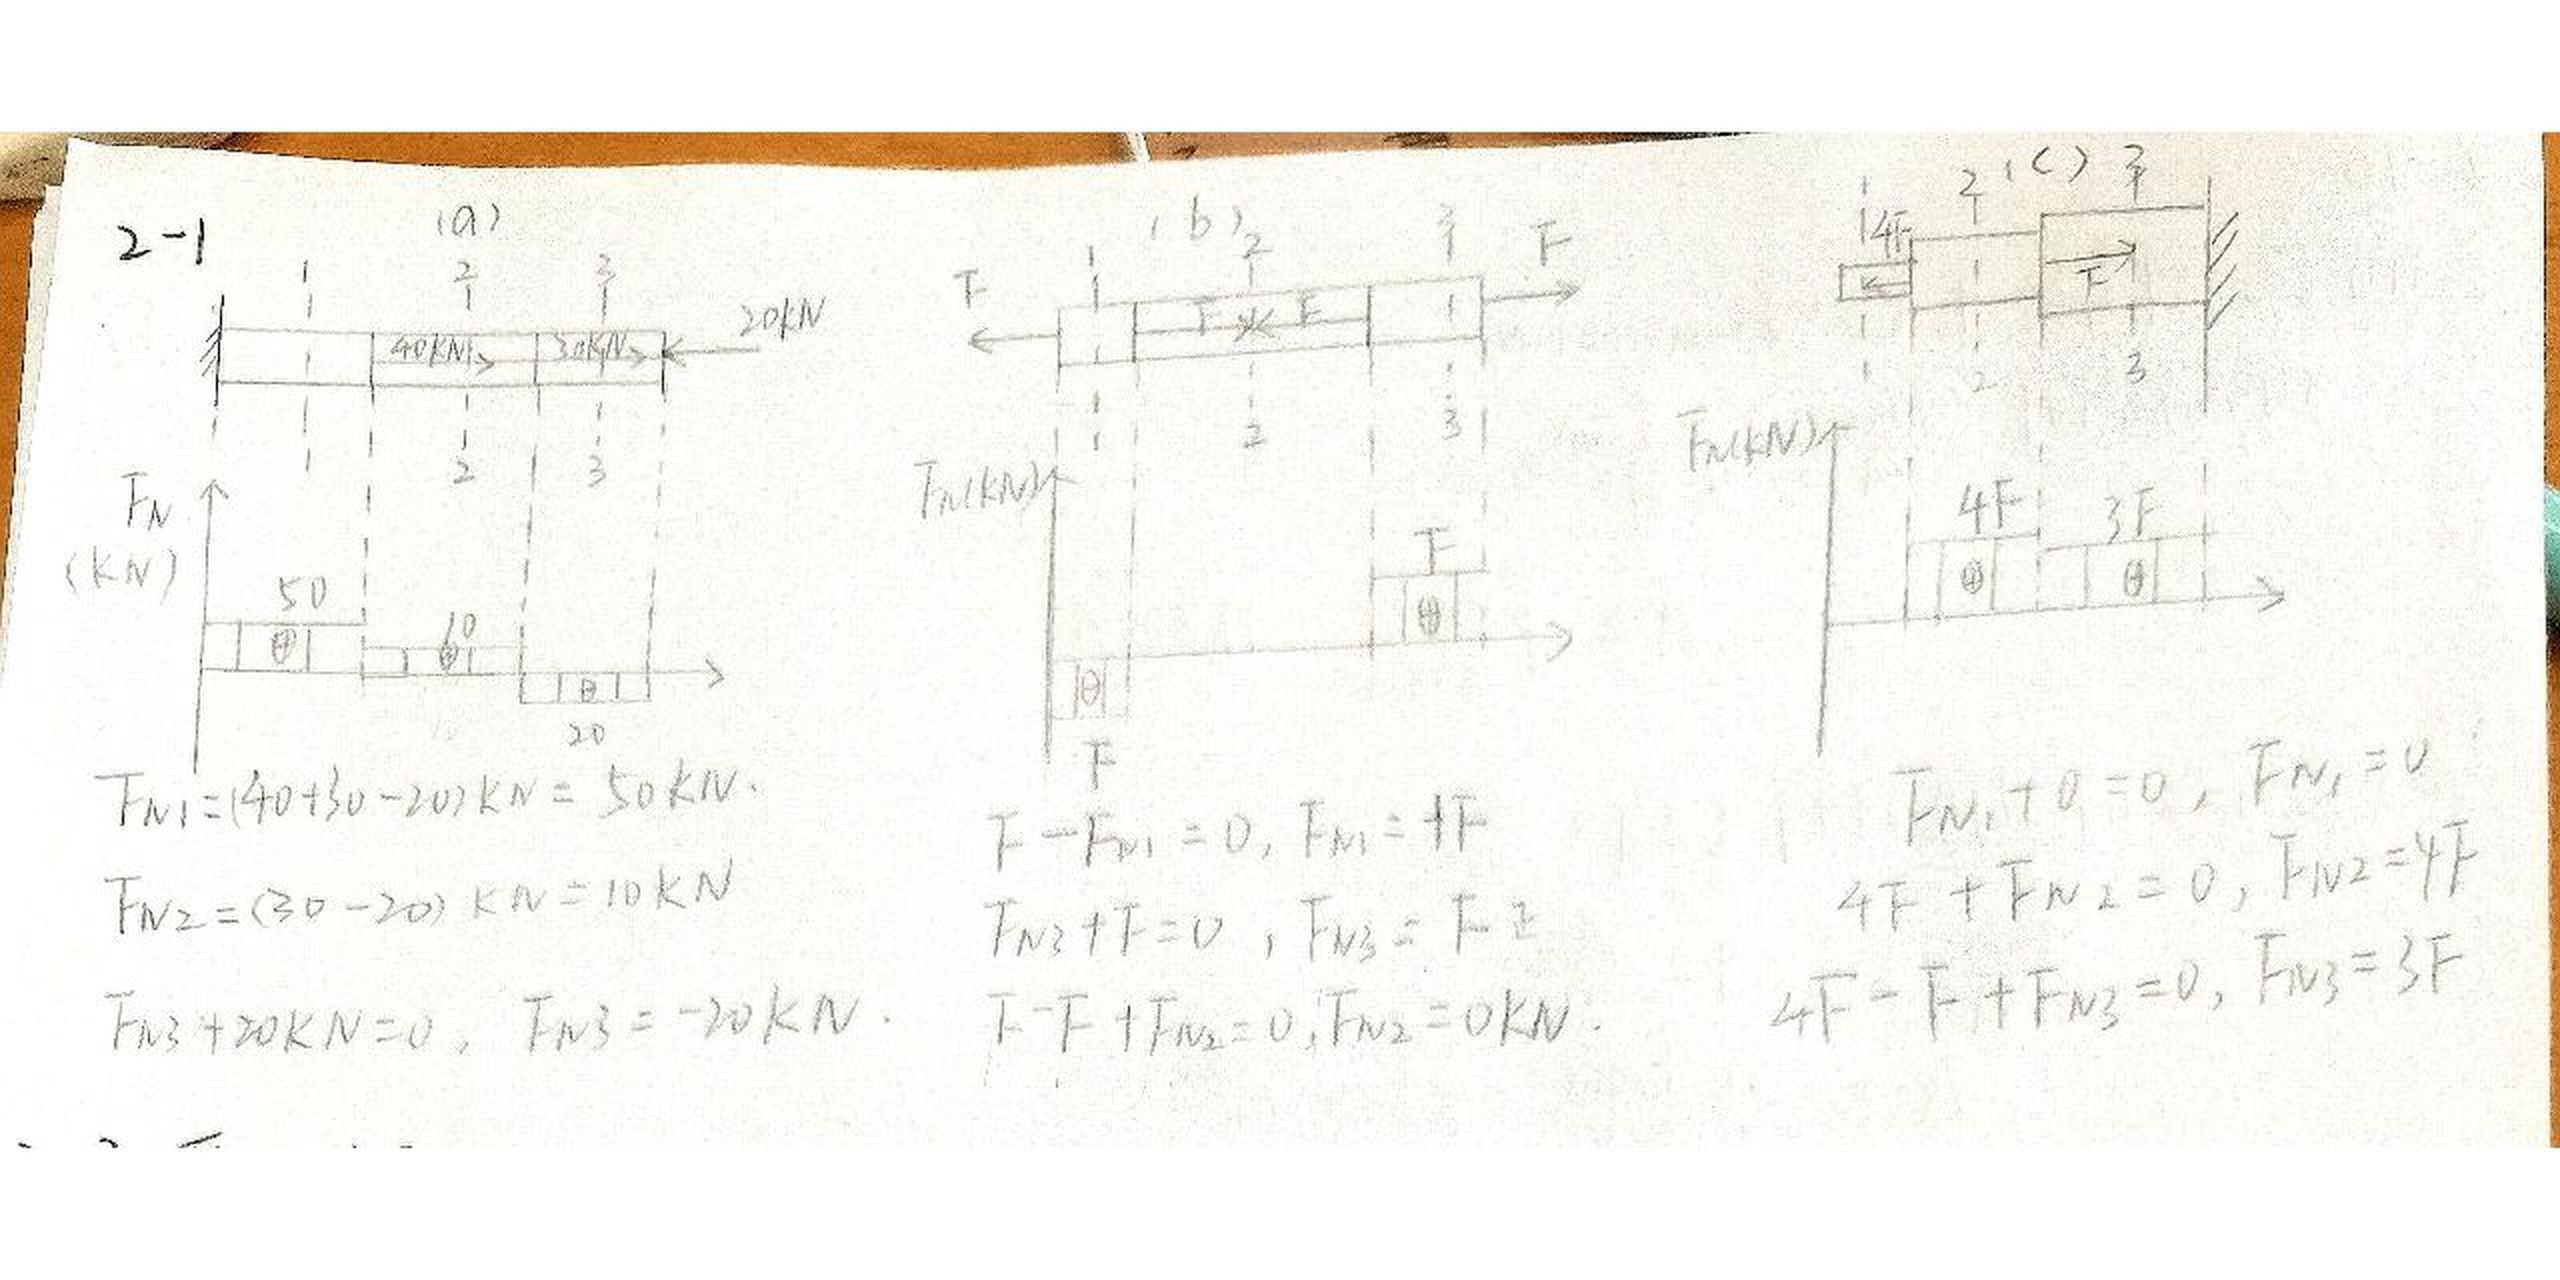 2-1
(a)
1 2 3
40KN 30KN 20KN
1 2 3
FN
(KN)
50
10
20
FN1=(40+30-20)KN= 50KN.
FN2=(30-20) KN=10KN
FN3+20KN=0, FN3=-20KN.
(b)
1 2 3
F F F F
1 2 3
FN(KN)
F
F
F-FN1=0, FN1=+F
FN3+F=0, FN3=F
F-F+FN2=0, FN2=0KN.
(c)
1 2 3
4F F
1 2 3
FN(KN)
4F 3F
FN1+0=0, FN1=0
4F+FN2=0, FN2=4F
4F-F+FN3=0, FN3=3F